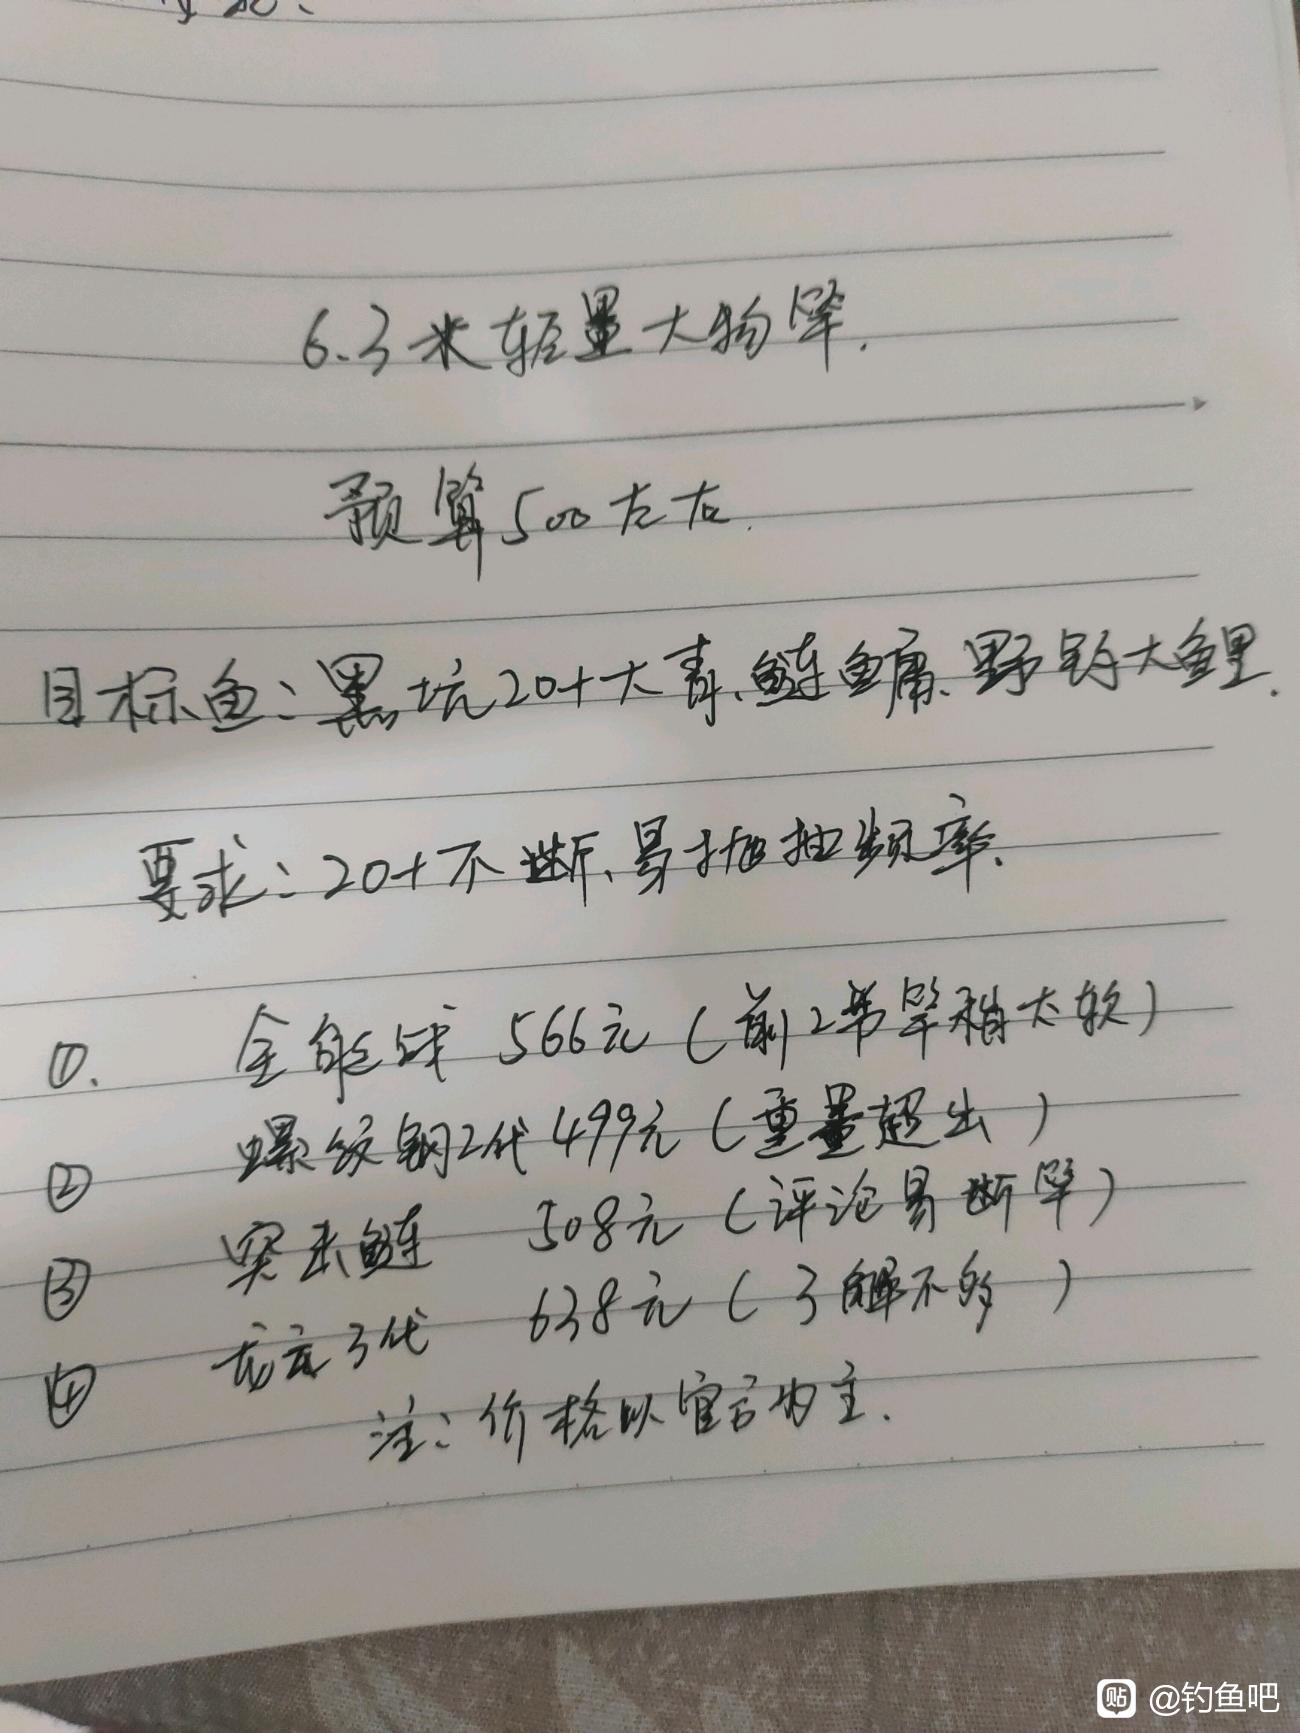 6.3米轻量大物竿.
预算500左右.
目标鱼:黑坑20+大青、鲢鳙、野钓大鲤.
要求:20+不断、易抛抽频率.
①. 全能战 566元(前2节竿稍太软)
② 螺纹钢2代 499元(重量超出)
③ 突击鲢 508元(评论易断竿)
④ 龙云3代 638元(了解不够)
注:价格以官方为主.
贴 @钓鱼吧